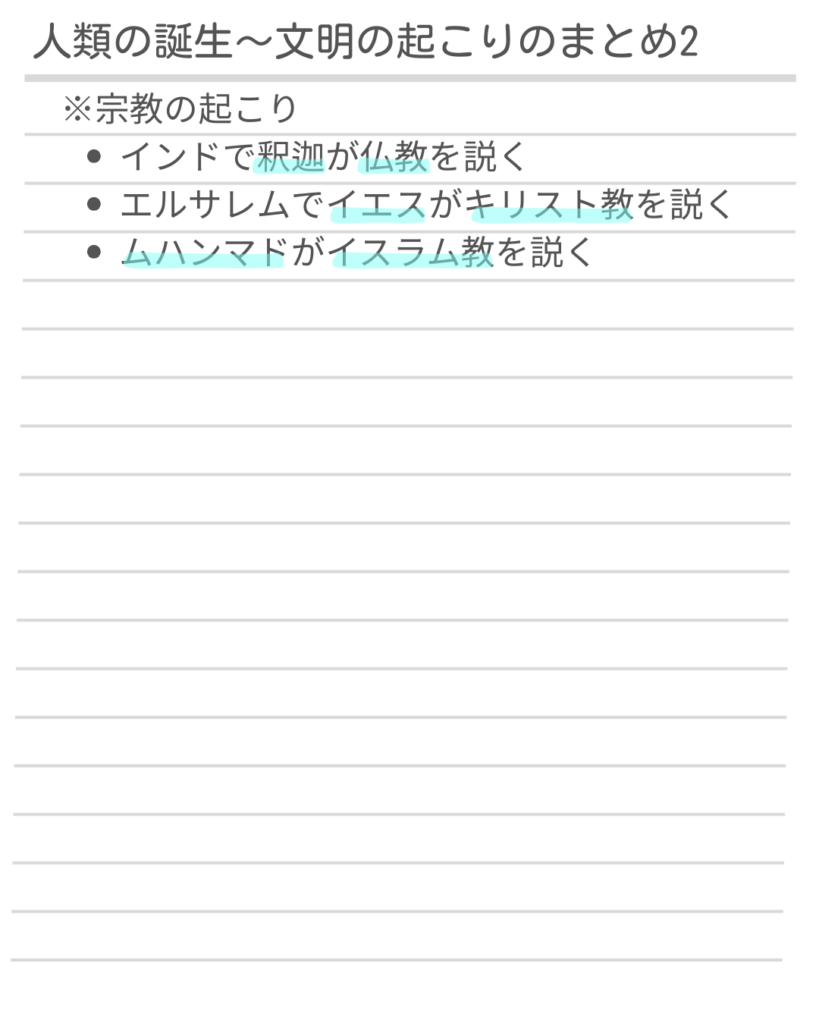 人類の誕生～文明の起こりのまとめ2
※宗教の起こり
• インドで釈迦が仏教を説く
• エルサレムでイエスがキリスト教を説く
• ムハンマドがイスラム教を説く